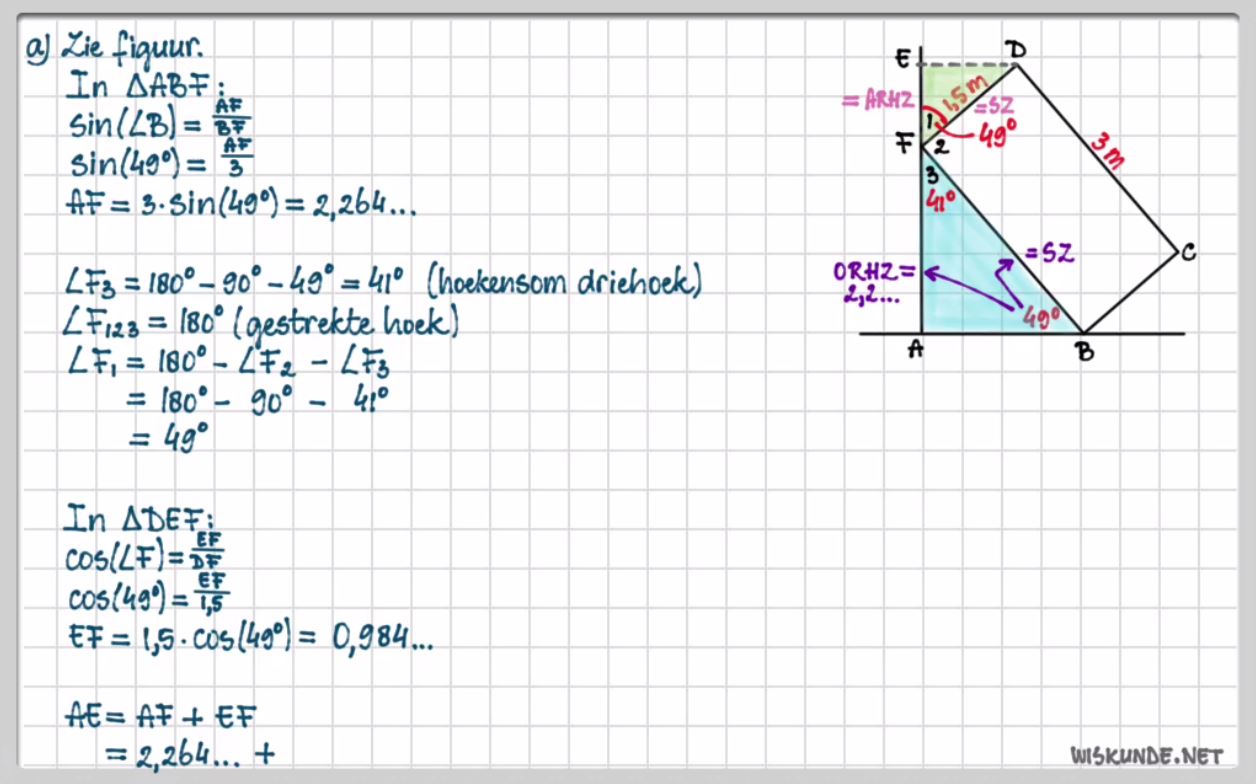 a) Zie figuur.
In ΔABF:
sin(∠B) = AF/BF
sin(49°) = AF/3
AF = 3·sin(49°) = 2,264...
∠F₃ = 180° - 90° - 49° = 41° (hoekensom driehoek)
∠F₁₂₃ = 180° (gestrekte hoek)
∠F₁ = 180° - ∠F₂ - ∠F₃
= 180° - 90° - 41°
= 49°
In ΔDEF:
cos(∠F) = EF/DF
cos(49°) = EF/1,5
EF = 1,5·cos(49°) = 0,984...
AE = AF + EF
= 2,264... +
E
D
= ARHZ
1,5 m
= SZ
1
49°
F
2
3 m
3
41°
C
= SZ
ORHZ =
2,2...
49°
A
B
WISKUNDE.NET